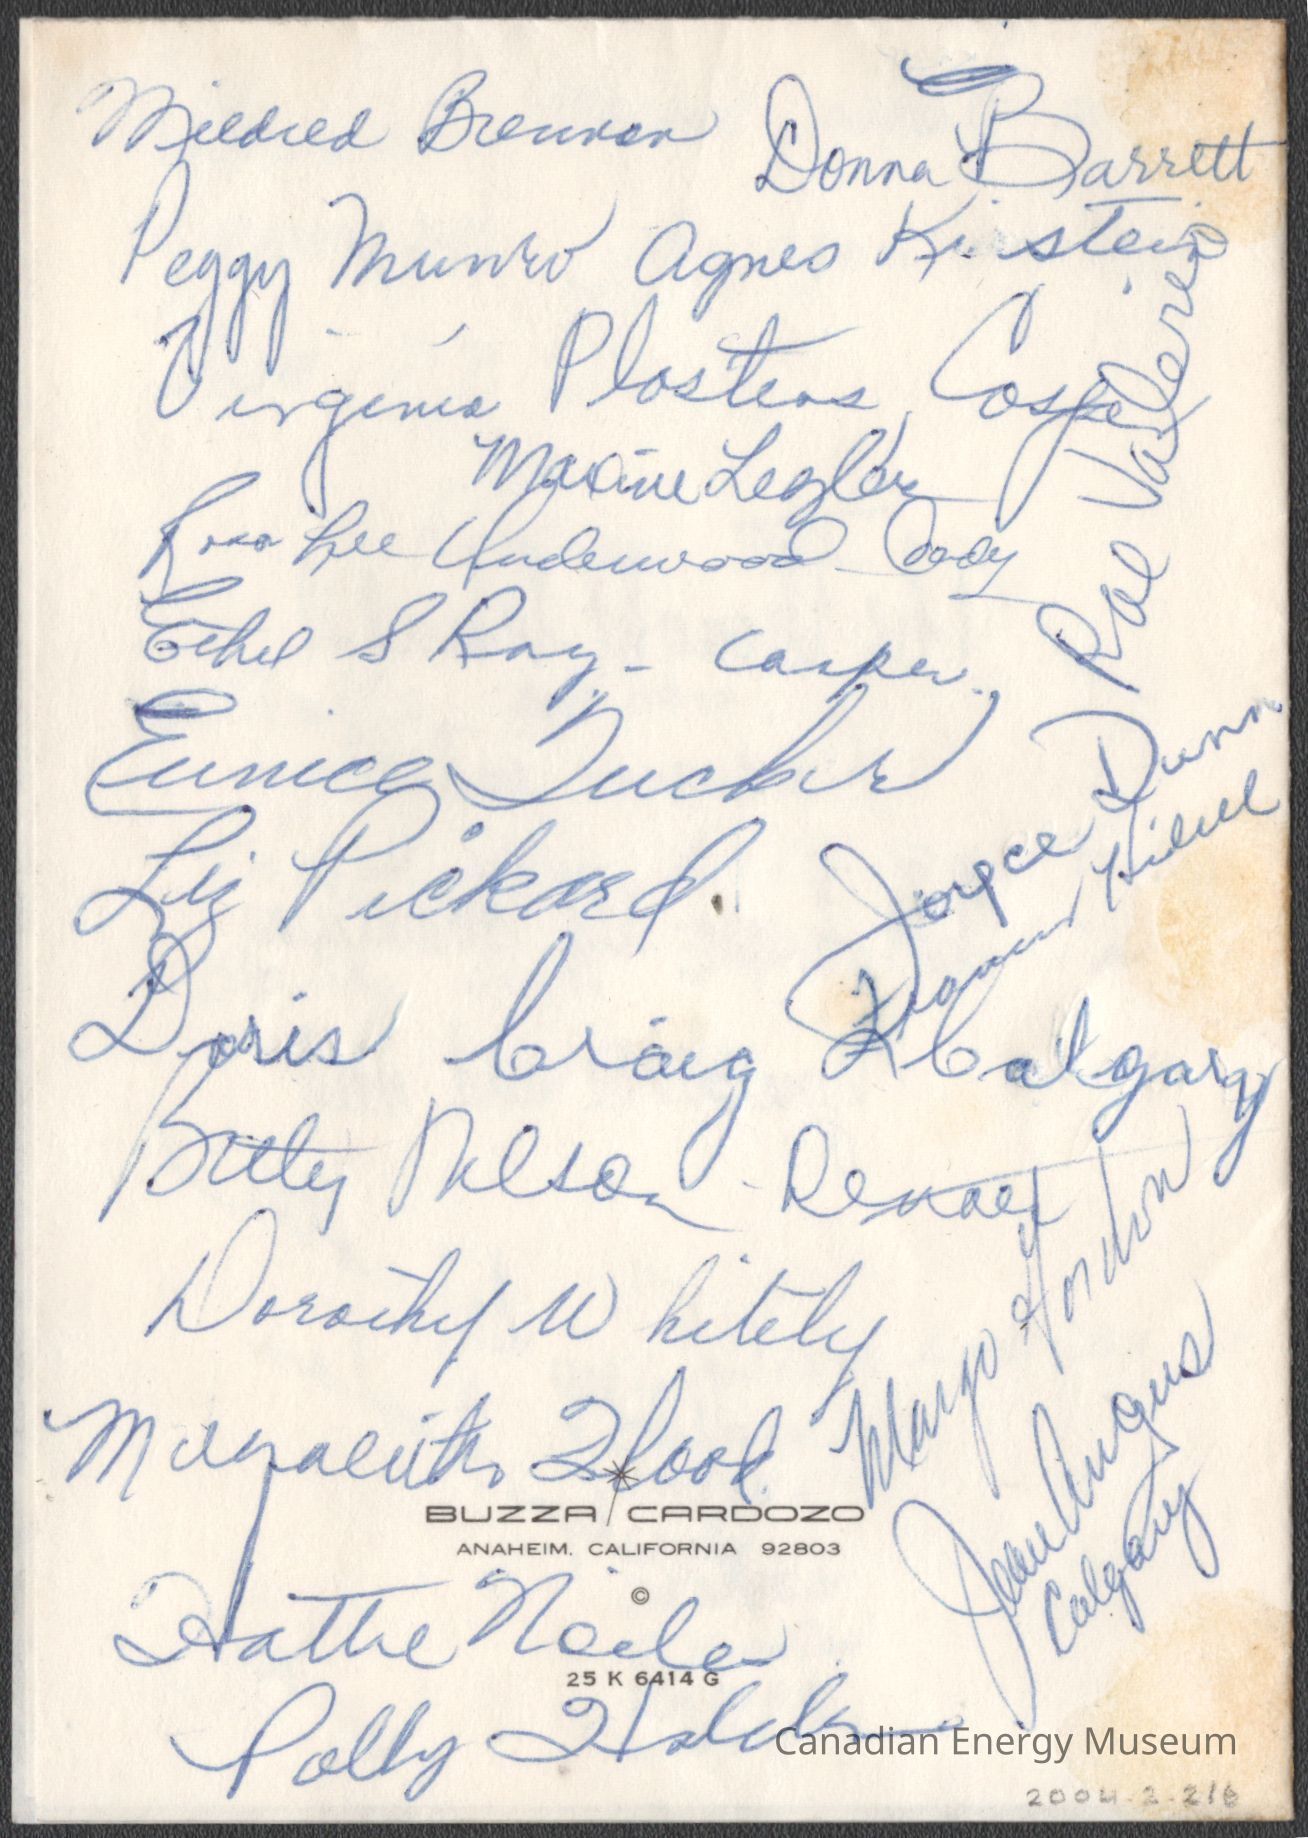 Mildred Brennan
Donna Barrett
Peggy Munro Agnes Kirstein
Virginia Plasters, Casper
Maxine Legler
Rosa Lee Underwood Cody
Ethel S Ray - Casper.
Rae
Eunice Tucker
Liz Pickard
Joyce Dunn
Doris Craig Calgary
Betty Nelson -
Dorothy Whitely
Margo Gordon
Flood
Jean Angus
Calgary
BUZZA CARDOZO
ANAHEIM, CALIFORNIA 92803
©
Hattie
25 K 6414 G
Polly
Canadian Energy Museum
2004.2.216